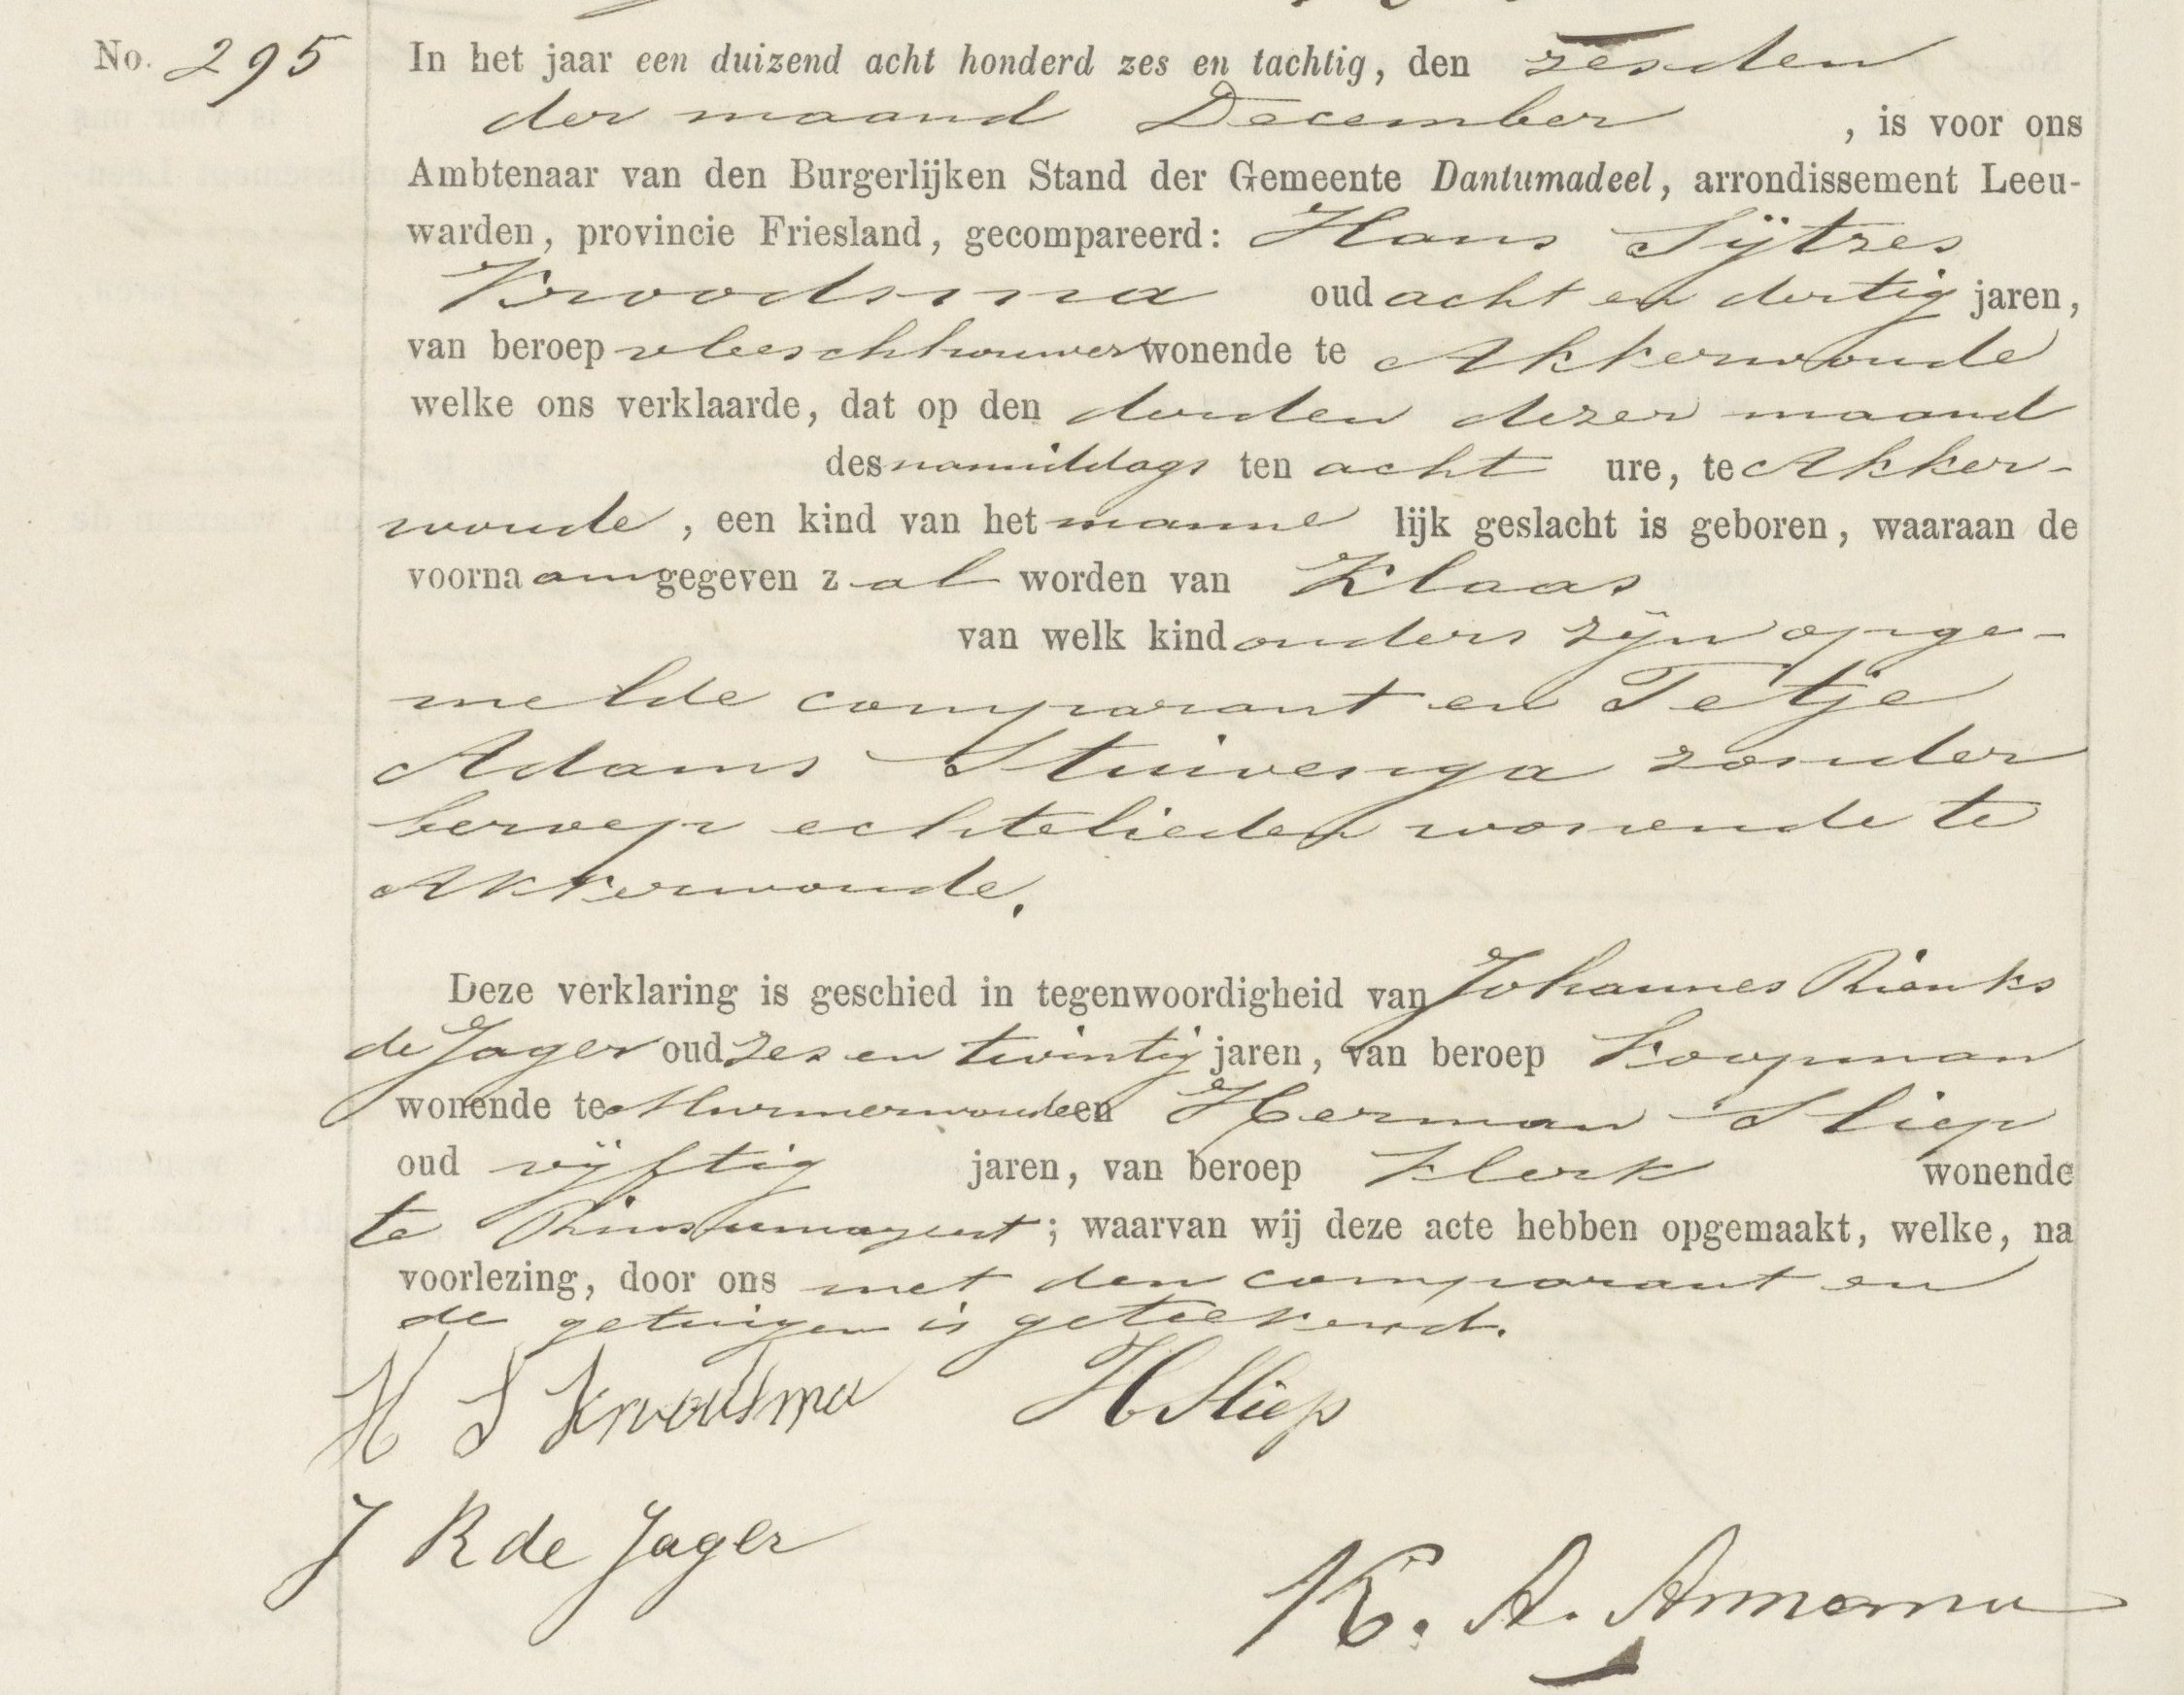 No. 295 In het jaar een duizend acht honderd zes en tachtig, den zesden
der maand December, is voor ons
Ambtenaar van den Burgerlijken Stand der Gemeente Dantumadeel, arrondissement Leeu-
warden, provincie Friesland, gecompareerd: Hans Sijtzes
Kroodsma oud acht en dertig jaren,
van beroep vleeschhouwer wonende te Akkerwoude
welke ons verklaarde, dat op den derden dezer maand
des namiddags ten acht ure, te Akker-
woude, een kind van het manne lijk geslacht is geboren, waaraan de
voorna am gegeven z al worden van Klaas
van welk kind ouders zijn opge-
melde comparant en Tetje
Adams Stuivenga zonder
beroep echtelieden wonende te
Akkerwoude.
Deze verklaring is geschied in tegenwoordigheid van Johannes Rienks
de Jager oud zes en twintig jaren, van beroep koopman
wonende te Murmerwoude en Herman Sliep
oud vijftig jaren, van beroep klerk wonende
te Rinsumageest; waarvan wij deze acte hebben opgemaakt, welke, na
voorlezing, door ons met den comparant en
de getuigen is geteekend.
H S Kroodsma H Sliep
J R de Jager
K. A.